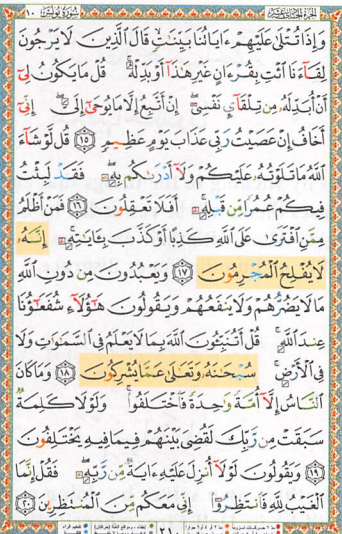 الجزء الحادي عشر سورة يونس ١٠
وَإِذَا تُتْلَىٰ عَلَيْهِمْ ءَايَاتُنَا بَيِّنَٰتٍ قَالَ الَّذِينَ لَا يَرْجُونَ
لِقَآءَنَا ائْتِ بِقُرْءَانٍ غَيْرِ هَٰذَآ أَوْ بَدِّلْهُ قُلْ مَا يَكُونُ لِىٓ
أَنْ أُبَدِّلَهُۥ مِن تِلْقَآئِ نَفْسِىٓ إِنْ أَتَّبِعُ إِلَّا مَا يُوحَىٰٓ إِلَىَّ إِنِّىٓ
أَخَافُ إِنْ عَصَيْتُ رَبِّى عَذَابَ يَوْمٍ عَظِيمٍ ١٥ قُل لَّوْ شَآءَ
اللَّهُ مَا تَلَوْتُهُۥ عَلَيْكُمْ وَلَآ أَدْرَىٰكُم بِهِۦ فَقَدْ لَبِثْتُ
فِيكُمْ عُمُرًا مِّن قَبْلِهِۦٓ أَفَلَا تَعْقِلُونَ ١٦ فَمَنْ أَظْلَمُ
مِمَّنِ افْتَرَىٰ عَلَى اللَّهِ كَذِبًا أَوْ كَذَّبَ بِـَٔايَٰتِهِۦٓ إِنَّهُۥ
لَا يُفْلِحُ الْمُجْرِمُونَ ١٧ وَيَعْبُدُونَ مِن دُونِ اللَّهِ
مَا لَا يَضُرُّهُمْ وَلَا يَنفَعُهُمْ وَيَقُولُونَ هَٰٓؤُلَآءِ شُفَعَٰٓؤُنَا
عِندَ اللَّهِ قُلْ أَتُنَبِّـُٔونَ اللَّهَ بِمَا لَا يَعْلَمُ فِى السَّمَٰوَٰتِ وَلَا
فِى الْأَرْضِ سُبْحَٰنَهُۥ وَتَعَٰلَىٰ عَمَّا يُشْرِكُونَ ١٨ وَمَا كَانَ
النَّاسُ إِلَّآ أُمَّةً وَٰحِدَةً فَاخْتَلَفُوا۟ وَلَوْلَا كَلِمَةٌ
سَبَقَتْ مِن رَّبِّكَ لَقُضِىَ بَيْنَهُمْ فِيمَا فِيهِ يَخْتَلِفُونَ
١٩ وَيَقُولُونَ لَوْلَآ أُنزِلَ عَلَيْهِ ءَايَةٌ مِّن رَّبِّهِۦ فَقُلْ إِنَّمَا
الْغَيْبُ لِلَّهِ فَانتَظِرُوٓا۟ إِنِّى مَعَكُم مِّنَ الْمُنتَظِرِينَ ٢٠
٢١٠